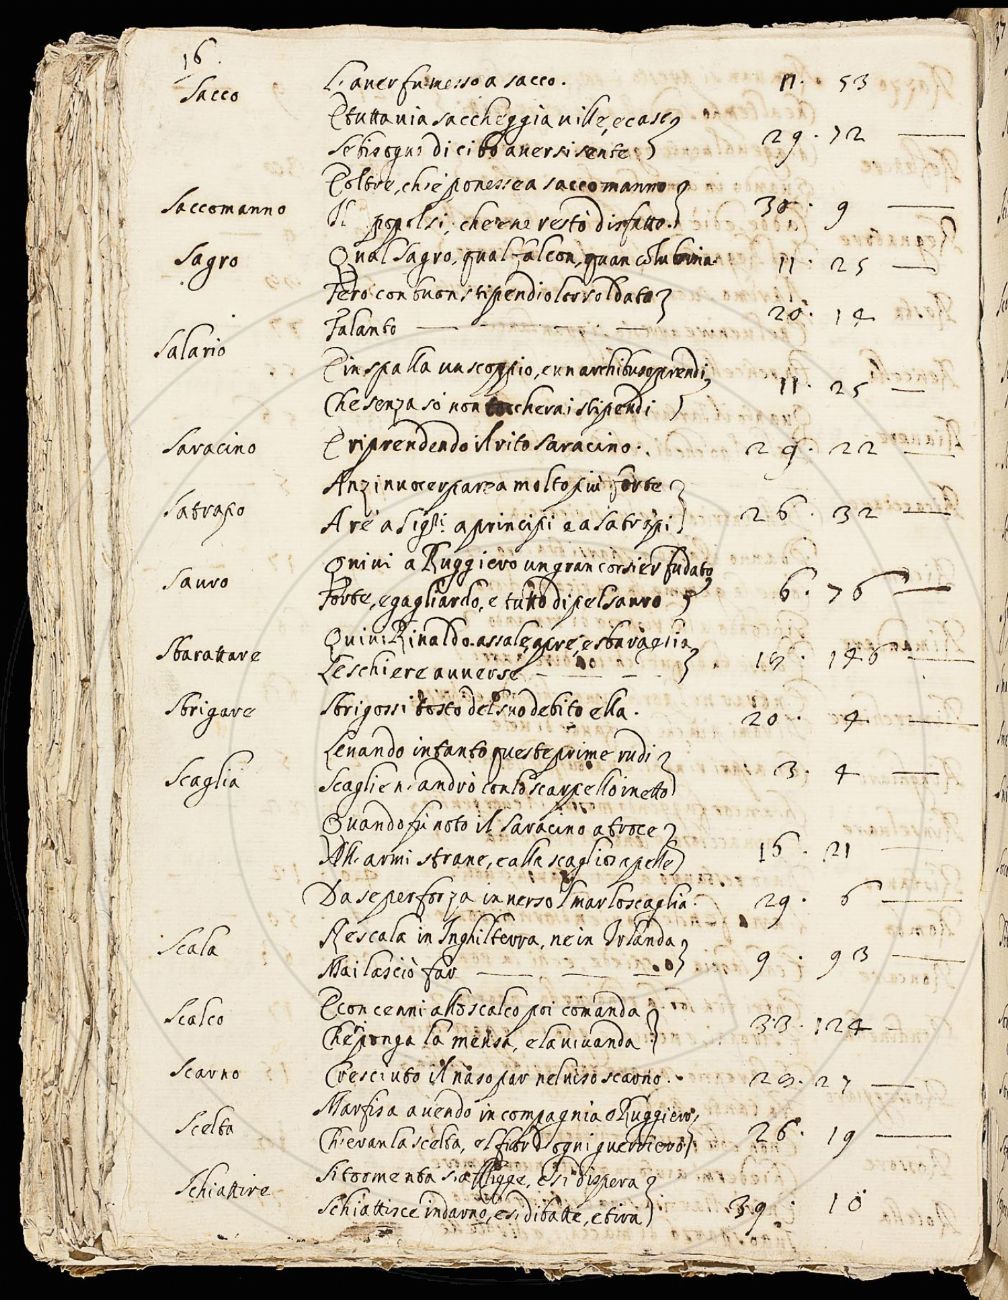 16.
Sacco L'aver fu messo a sacco. 11. 53
E tuttavia saccheggia ville, e case
Se bisogno di cibo aver si sente 29. 72
E oltre, ch'e' ponesse a saccomanno
Il popol sì, che ne restò disfatto. 38. 9
Saccomanno
Sagro Qual sagro, qual falcon, qual colubrina 11. 25
Però con buon stipendio lor soldato
Falanto 20. 14
Salario
E in spalla un scoppio, e un archibuso prendi
Che senza so non toccherai stipendi 11. 25
Saracino E riprendendo il rito Saracino. 29. 22
Anzi nuocer parea molto più forte
Satrapo A re a Sig.ri a principi e a satrapi 26. 32
Quivi a Ruggiero un gran corsier fu dato
Sauro Forte, e gagliardo, e tutto di pel sauro 6. 76
Quivi Rinaldo assale, apre, e sbaraglia
Sbarattare Le schiere avverse 18. 146
Sbrigare Sbrigossi tosto del suo debito ella. 20. 4
Levando intanto queste prime rudi
Scaglia Scaglie n'andrò con lo scarpello inetto 3. 4
Quando fu noto il Saracino atroce
All'armi strane, e alla scagliosa pelle 16. 21
Da se per forza in verso 'l mar lo scaglia. 29. 6
Ne scala in Inghilterra, ne in Irlanda
Scala Mai lasciò far 9. 93
E con cenni allo scalco poi comanda
Scalco Che ponga la mensa, e la vivanda 33. 124
Scarno Cresciuto il naso par nel viso scarno. 28. 27
Marfisa avendo in compagnia e Ruggiero,
Scelta Ch'eran la scelta, e 'l fior d'ogni guerriero 26. 19
Si tormenta s'affligge, e si dispera
Schiattire Schiattisce indarno, e si dibatte, e tira 39. 10